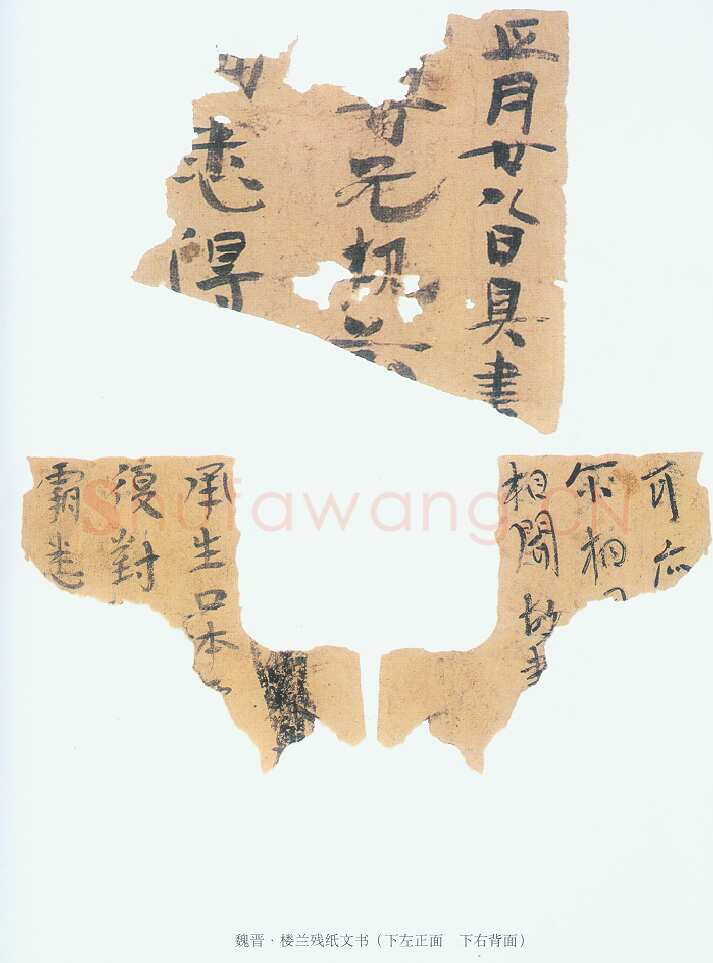 正月廿八日具書
无
悉得
承生口本
復對
霸悉
可
尓相
相聞故
Shufawang.CN
魏晋·楼兰残纸文书（下左正面 下右背面）